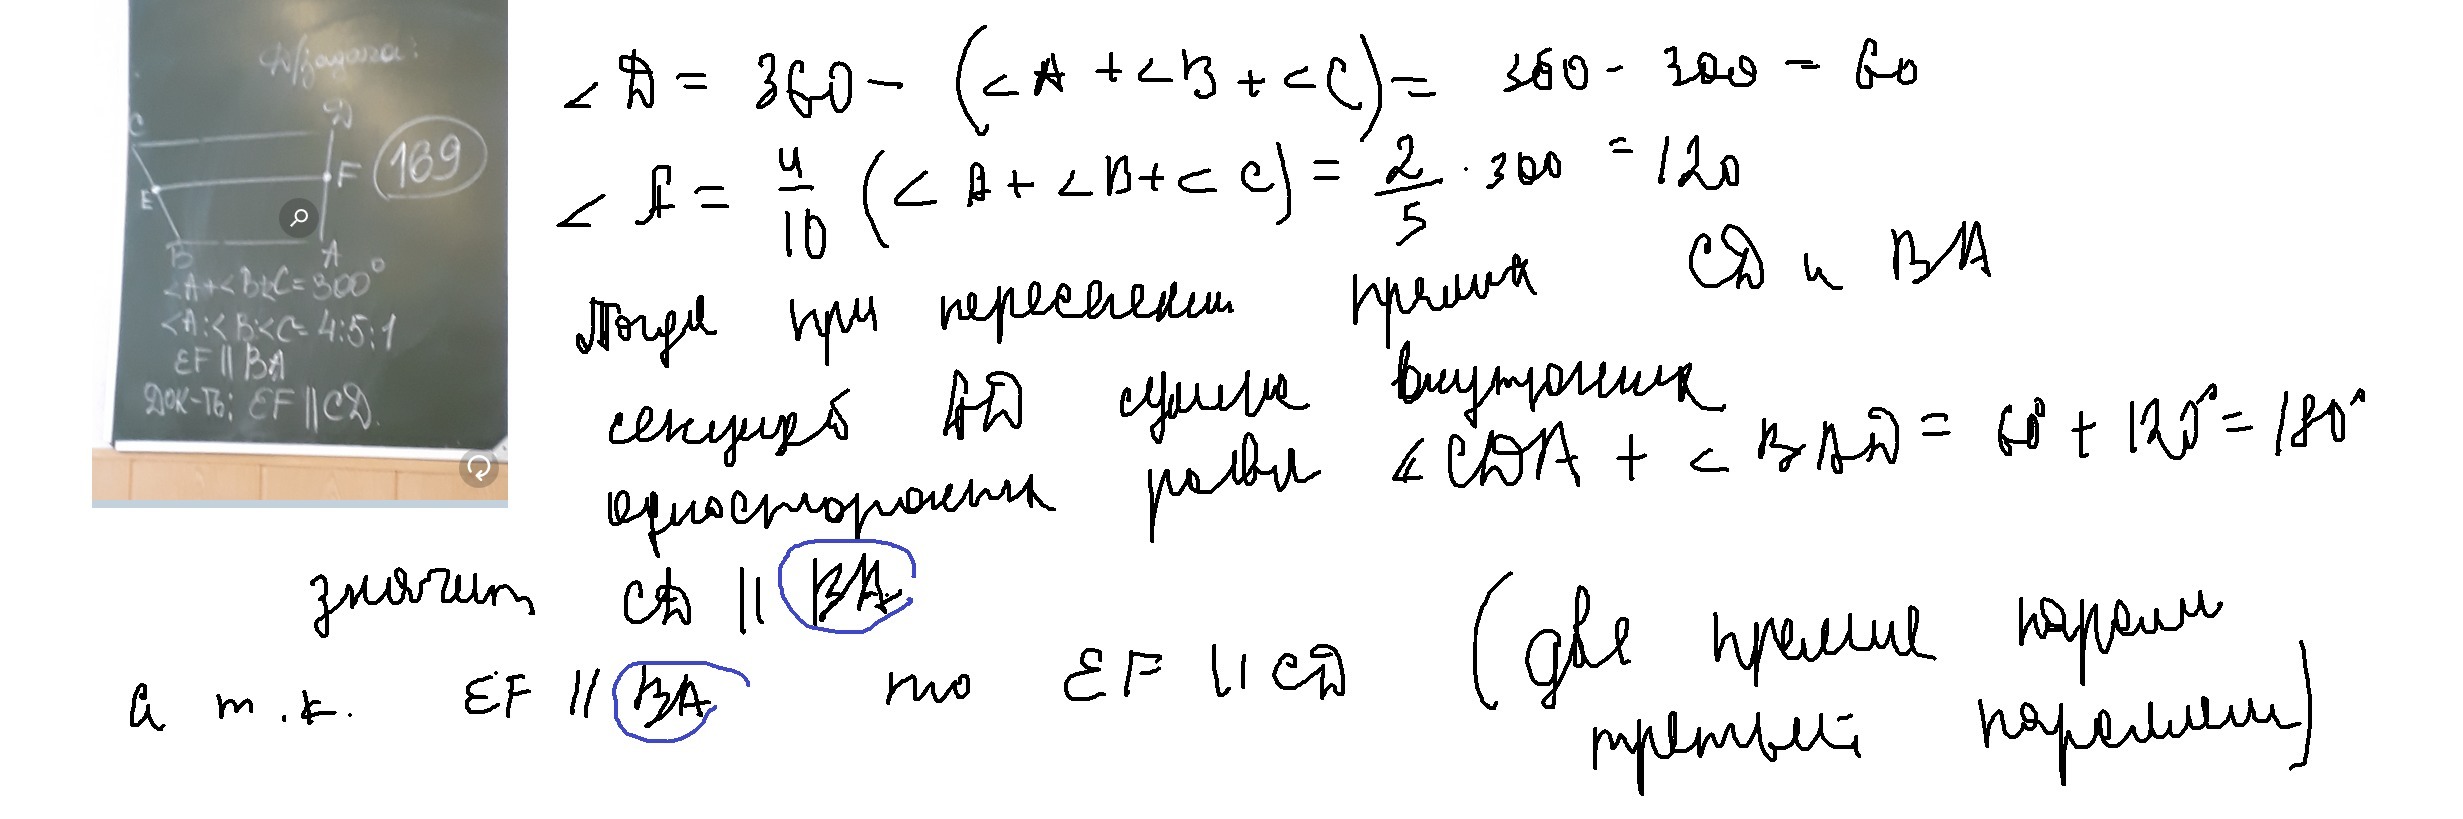 Д/задача:
C
D
F
169
E
B
A
<A+<B+<C=300°
<A:<B:<C=4:5:1
EF || BA
Док-ть: EF || CD.
< D = 360 - (< A + < B + < C) = 360 - 300 = 60
< A = 4/10 (< A + < B + < C) = 2/5 · 300 = 120
Тогда при пересечен прямых CD и BA
секущей AD сумма внутренних
односторонних равна < CDA + < BAD = 60° + 120° = 180°
значит CD || BA
а т.к. EF || BA то EF || CD (две прямые паралл
третьей параллел)